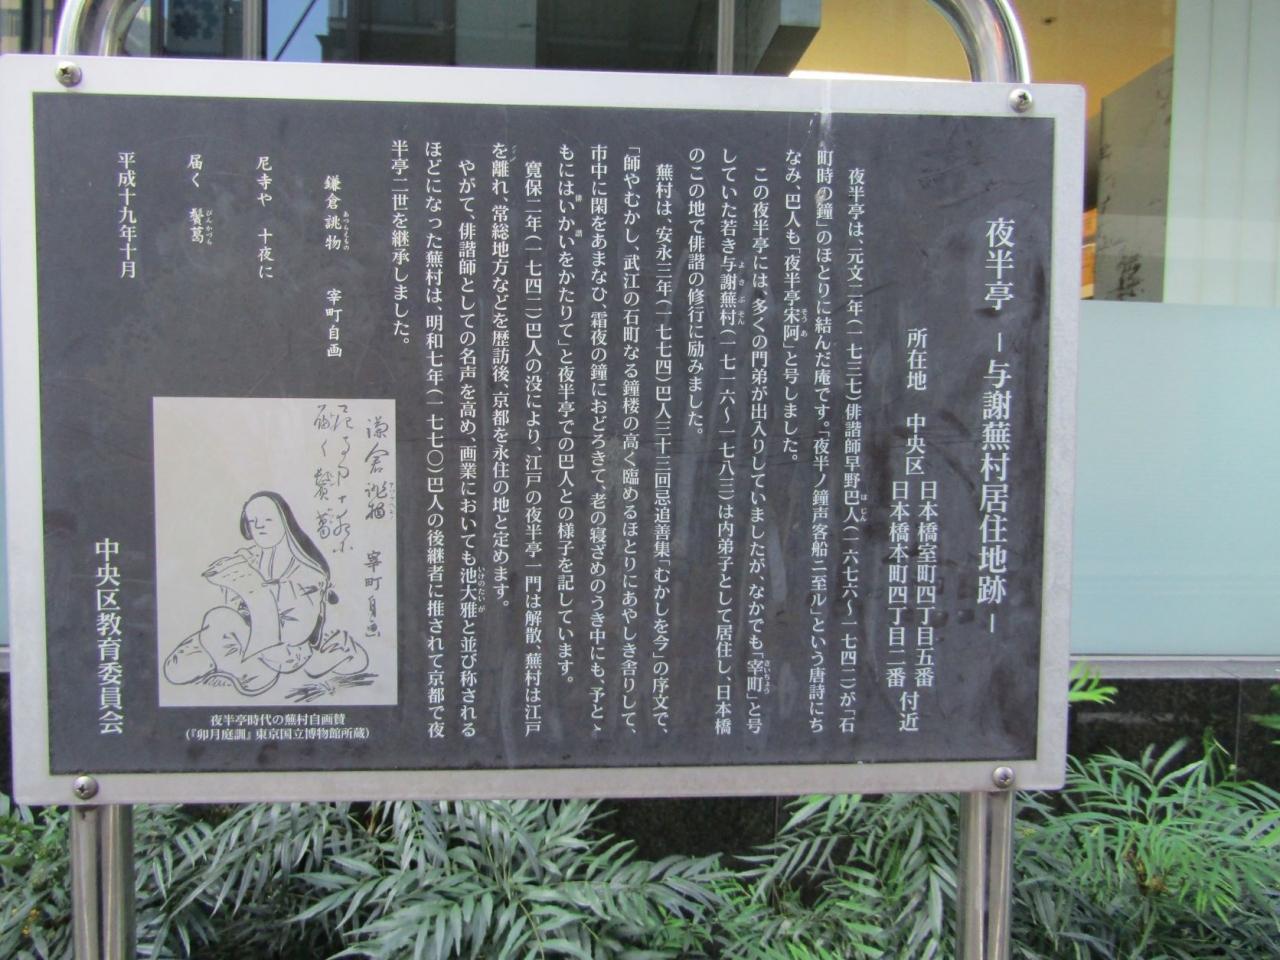 夜半亭 ー与謝蕪村居住地跡ー
所在地 中央区 日本橋室町四丁目五番
日本橋本町四丁目二番 付近
夜半亭は、元文二年(一七三七)俳諧師早野巴人(一六七六〜一七四二)が「石
町時の鐘」のほとりに結んだ庵です。「夜半ノ鐘声客船ニ至ル」という唐詩にち
なみ、巴人も「夜半亭宋阿」と号しました。
この夜半亭には、多くの門弟が出入りしていましたが、なかでも「宰町」と号
していた若き与謝蕪村(一七一六〜一七八三)は内弟子として居住し、日本橋
のこの地で俳諧の修行に励みました。
蕪村は、安永三年(一七七四)巴人三十三回忌追善集「むかしを今」の序文で、
「師やむかし、武江の石町なる鐘楼の高く臨めるほとりにあやしき舎りして、
市中に閑をあまなひ、霜夜の鐘におどろきて、老の寝ざめのうき中にも、予とゝ
もにはいかいをかたりて」と夜半亭での巴人との様子を記しています。
寛保二年(一七四二)巴人の没により、江戸の夜半亭一門は解散、蕪村は江戸
を離れ、常総地方などを歴訪後、京都を永住の地と定めます。
やがて、俳諧師としての名声を高め、画業においても池大雅と並び称される
ほどになった蕪村は、明和七年(一七七〇)巴人の後継者に推されて京都で夜
半亭二世を継承しました。
鎌倉誂物 宰町自画
尼寺や 十夜に
届く 鬢葛
平成十九年十月
鎌倉誂物 宰町自画
尼寺や十夜に
届く鬢葛
夜半亭時代の蕪村自画賛
(『卯月庭訓』東京国立博物館所蔵)
中央区教育委員会